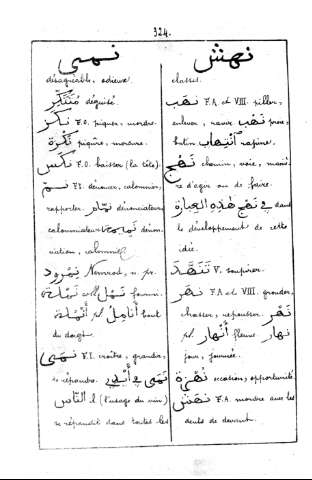 324.
نمى
désagréable, odieuse.
مُتَنَكِّر déguisé.
نكز F.O. piquer, mordre.
نكزة piqûre, morsure.
نكس F.O. baisser (la tête).
نمّ F.I. dénoncer, calomnier,
rapporter. نمّام dénonciateur,
calomniateur نميمة dénon-
ciation, calomnie.
نمرود Nemrod, n. pr.
نملة coll. نمل fourmi.
أنملة pl. أنامل bout
du doigt.
نمى F.I. croître, grandir,
se répandre. نمى في
الناس (l'usage du vin)
se répandit dans toutes les
نهش
classes.
نهب F.A. et VIII. piller,
enlever, ravir نهب proie,
butin انتهاب rapine.
نهج chemin, voie, maniè-
re d'agir ou de faire.
في نهج هذه العبارة dans
le développement de cette
idée.
تنهّد V. soupirer.
نهر F.A. et VIII. gronder,
chasser, repousser. نهر
pl. أنهار fleuve نهار
jour, journée.
نهزة occasion, opportunité
نهش F.A. mordre avec les
dents de devant.